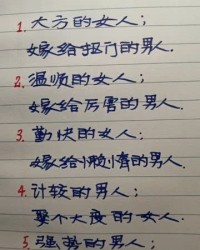 1. 大方的女人;
嫁给抠门的男人.
2. 温顺的女人;
嫁给厉害的男人.
3. 勤快的女人;
嫁给懒惰的男人.
4. 计较的男人;
娶个大度的女人.
5. 强势的男人;